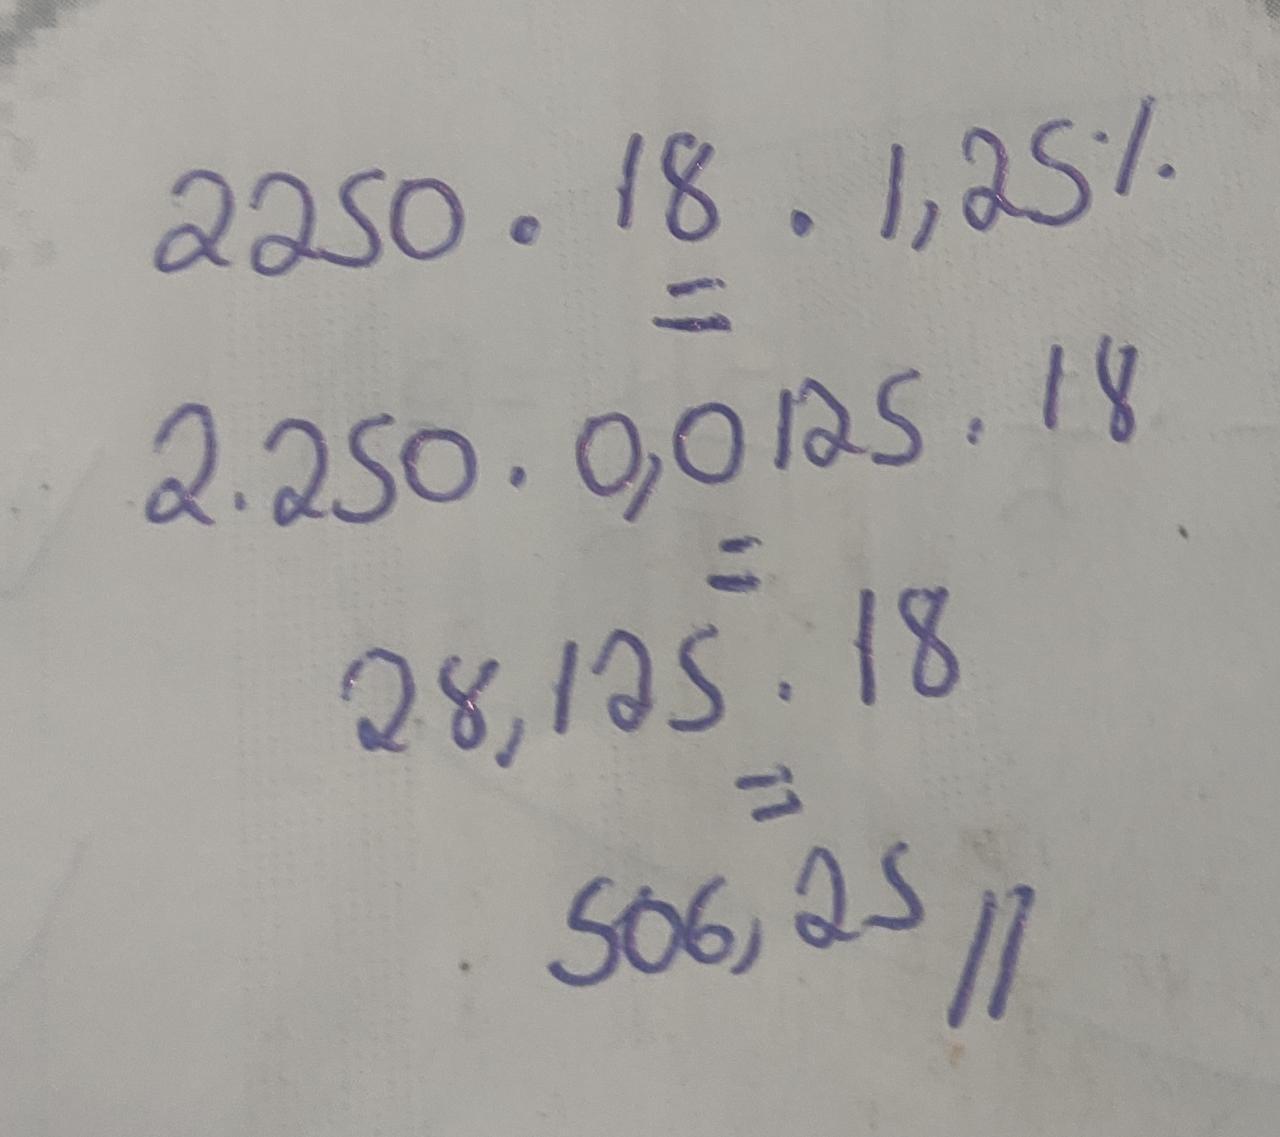 2250 . 18 . 1,25%
=
2.250 . 0,0125 . 18
=
28,125 . 18
=
506,25 //